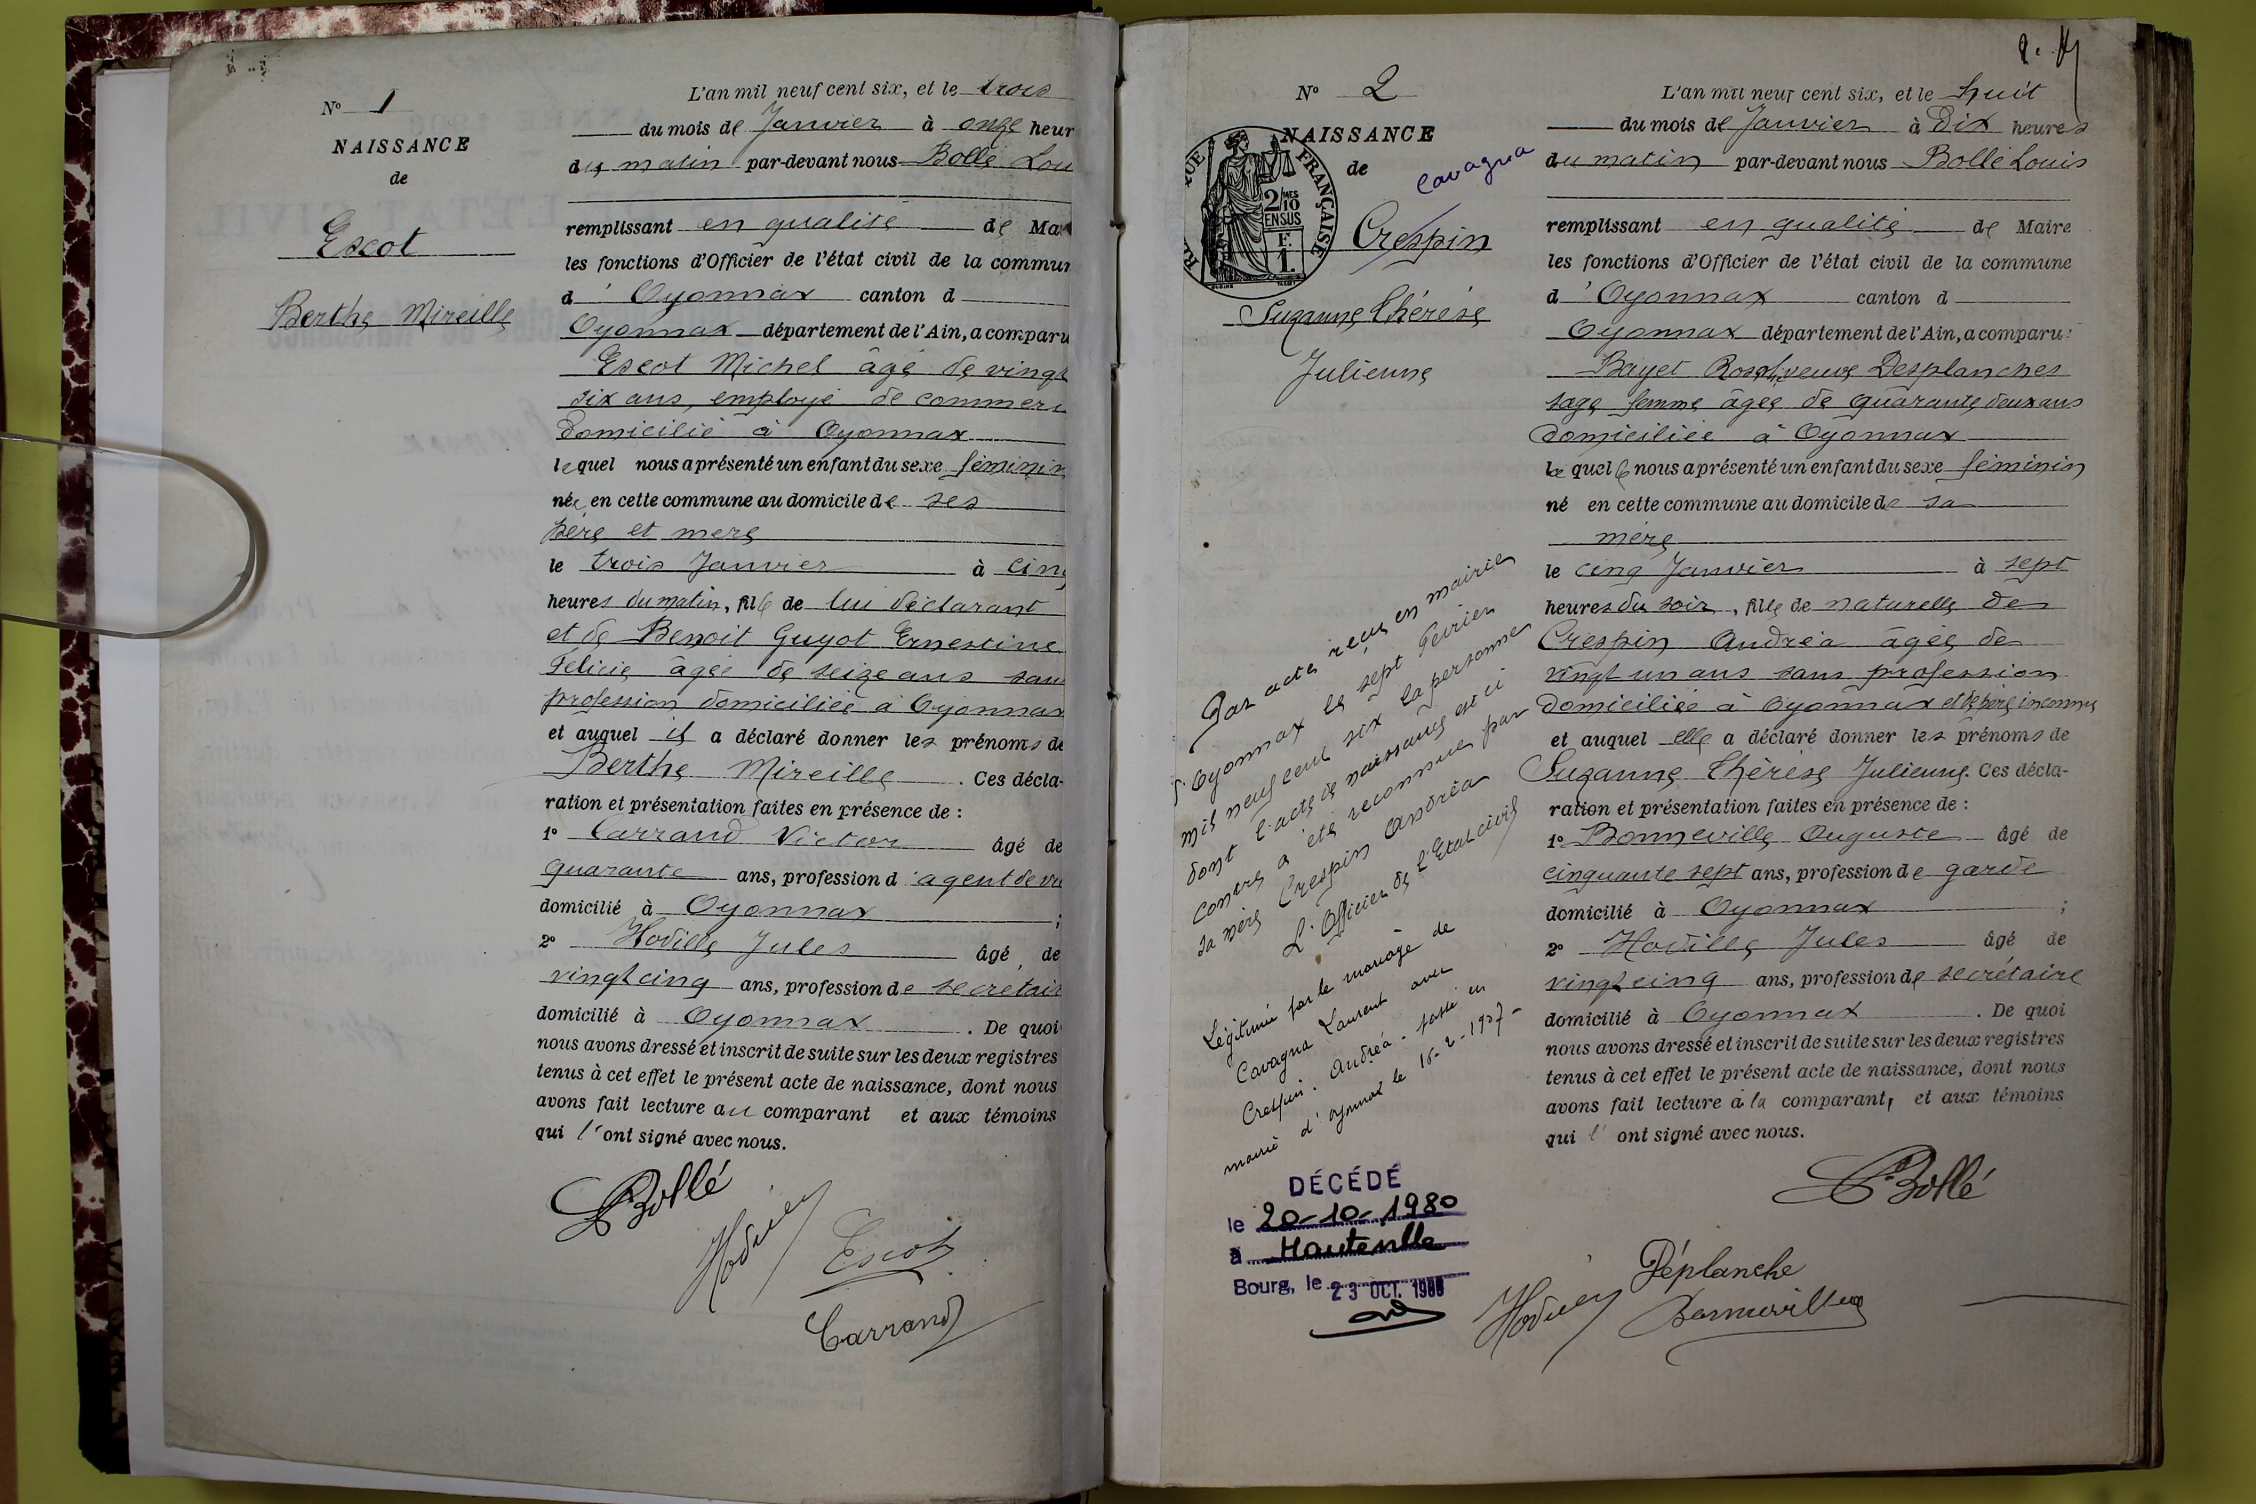 N° 1
NAISSANCE
de
Escot
Berthe Mireille
L'an mil neuf cent six, et le trois
du mois de Janvier à onze heur
du matin par-devant nous Bollé Lou
remplissant en qualité de Ma
les fonctions d'Officier de l'état civil de la commun
d' Oyonnax canton d
Oyonnax département de l'Ain, a comparu
Escot Michel âgé de vingt
six ans, employé de commerc
domicilié à Oyonnax
lequel nous a présenté un enfant du sexe féminin
née en cette commune au domicile de ses
père et mère
le trois Janvier à cinq
heures du matin, fille de lui déclarant
et de Benoit Guyot Ernestine
Félicie âgée de seize ans sans
profession domiciliée à Oyonnax
et auquel il a déclaré donner les prénoms de
Berthe Mireille. Ces décla-
ration et présentation faites en présence de :
1° Carrand Victor âgé de
quarante ans, profession d'agent de vi
domicilié à Oyonnax ;
2° Hodille Jules âgé de
vingt cinq ans, profession de secrétair
domicilié à Oyonnax. De quoi
nous avons dressé et inscrit de suite sur les deux registres
tenus à cet effet le présent acte de naissance, dont nous
avons fait lecture au comparant et aux témoins
qui l'ont signé avec nous.
Bollé
Escot
Carrand
N° 2
NAISSANCE
de
Cavagna
Crespin
Suzanne Thérèse
Julienne
FRANÇAISE
2/10
EN SUS
F.
1.
Par acte reçu en mairie
d'Oyonnax le sept Février
mil neuf cent six la personne
dont l'acte de naissance est ci
contre a été reconnue par
sa mère Crespin Andréa
L'Officier de l'Etat civil
Légitimée par le mariage de
Cavagna Laurent avec
Crespin Andréa - passé en
mairie d'Oyonnax le
DÉCÉDÉ
le 20-10-1980
à Hauteville
Bourg, le 23 OCT. 1980
L'an mil neuf cent six, et le huit
du mois de Janvier à Dix heures
du matin par-devant nous Bollé Louis
remplissant en qualité de Maire
les fonctions d'Officier de l'état civil de la commune
d' Oyonnax canton d
Oyonnax département de l'Ain, a comparu :
Bayet Rosalie veuve Desplanches
sage femme âgée de quarante deux ans
domiciliée à Oyonnax
laquelle nous a présenté un enfant du sexe féminin
né en cette commune au domicile de sa
mère
le cinq Janvier à sept
heures du soir, fille de naturelle de
Crespin Andréa âgée de
vingt un ans sans profession
domiciliée à Oyonnax et de père inconnu
et auquel elle a déclaré donner les prénoms de
Suzanne Thérèse Julienne. Ces décla-
ration et présentation faites en présence de :
1° Bonneville Auguste âgé de
cinquante sept ans, profession de garde
domicilié à Oyonnax ;
2° Hodille Jules âgé de
vingt cinq ans, profession de secrétaire
domicilié à Oyonnax. De quoi
nous avons dressé et inscrit de suite sur les deux registres
tenus à cet effet le présent acte de naissance, dont nous
avons fait lecture à la comparante, et aux témoins
qui l'ont signé avec nous.
Bollé
Déplanche